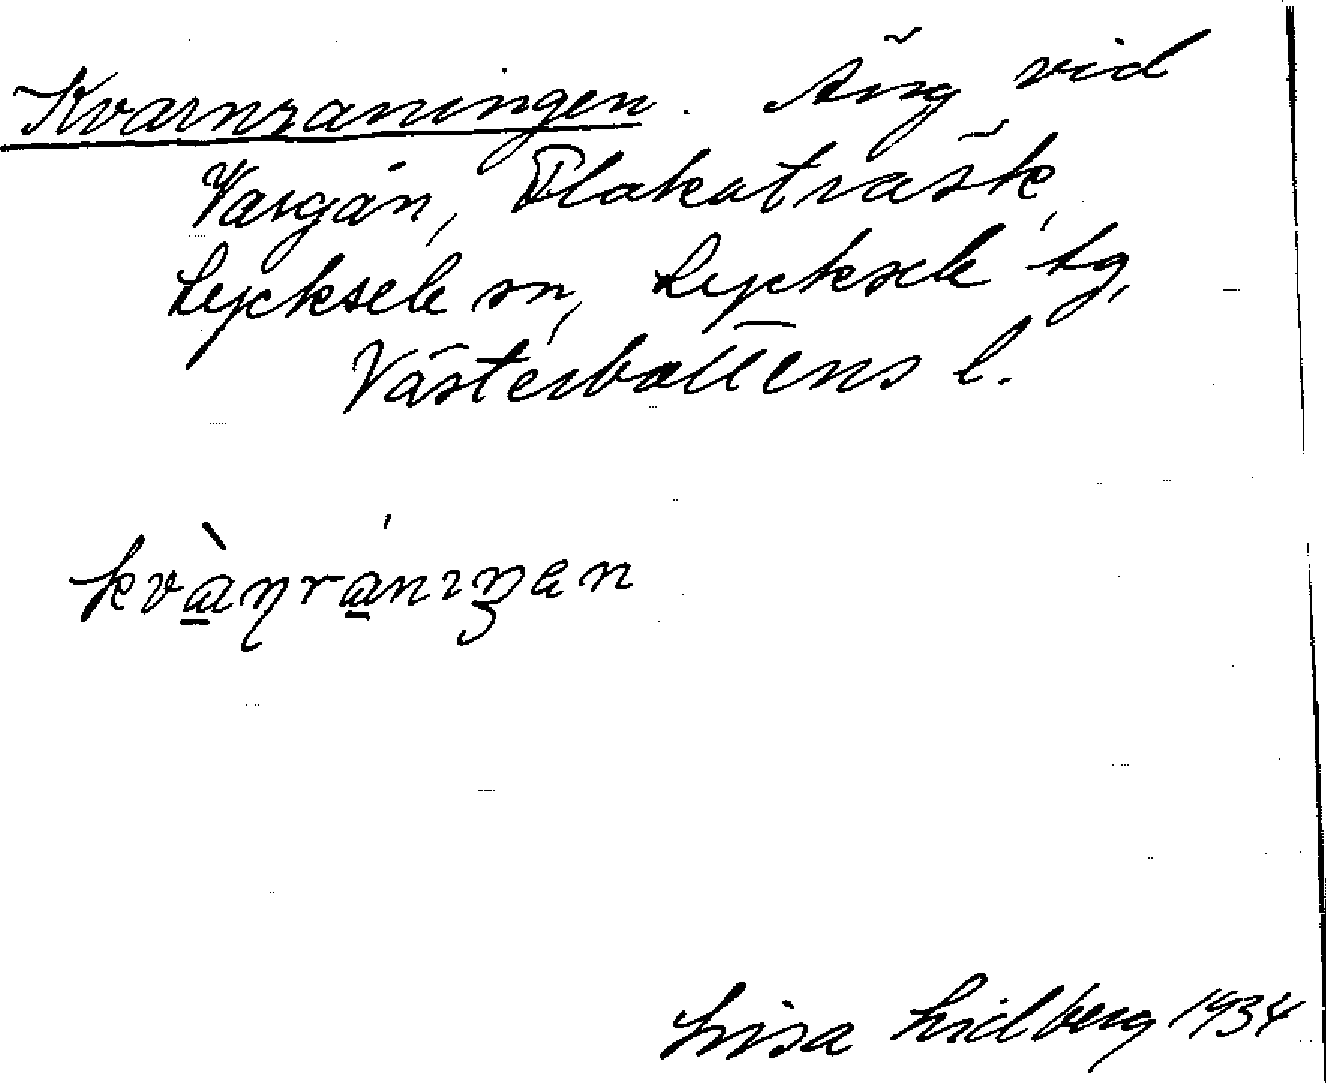 Kvarnraningen. Äng vid
Vargån, Flakaträsk,
Lycksele sn, Lycksele tg,
Västerbottens l.
kvànránıŋen
Lisa Lidberg 1934